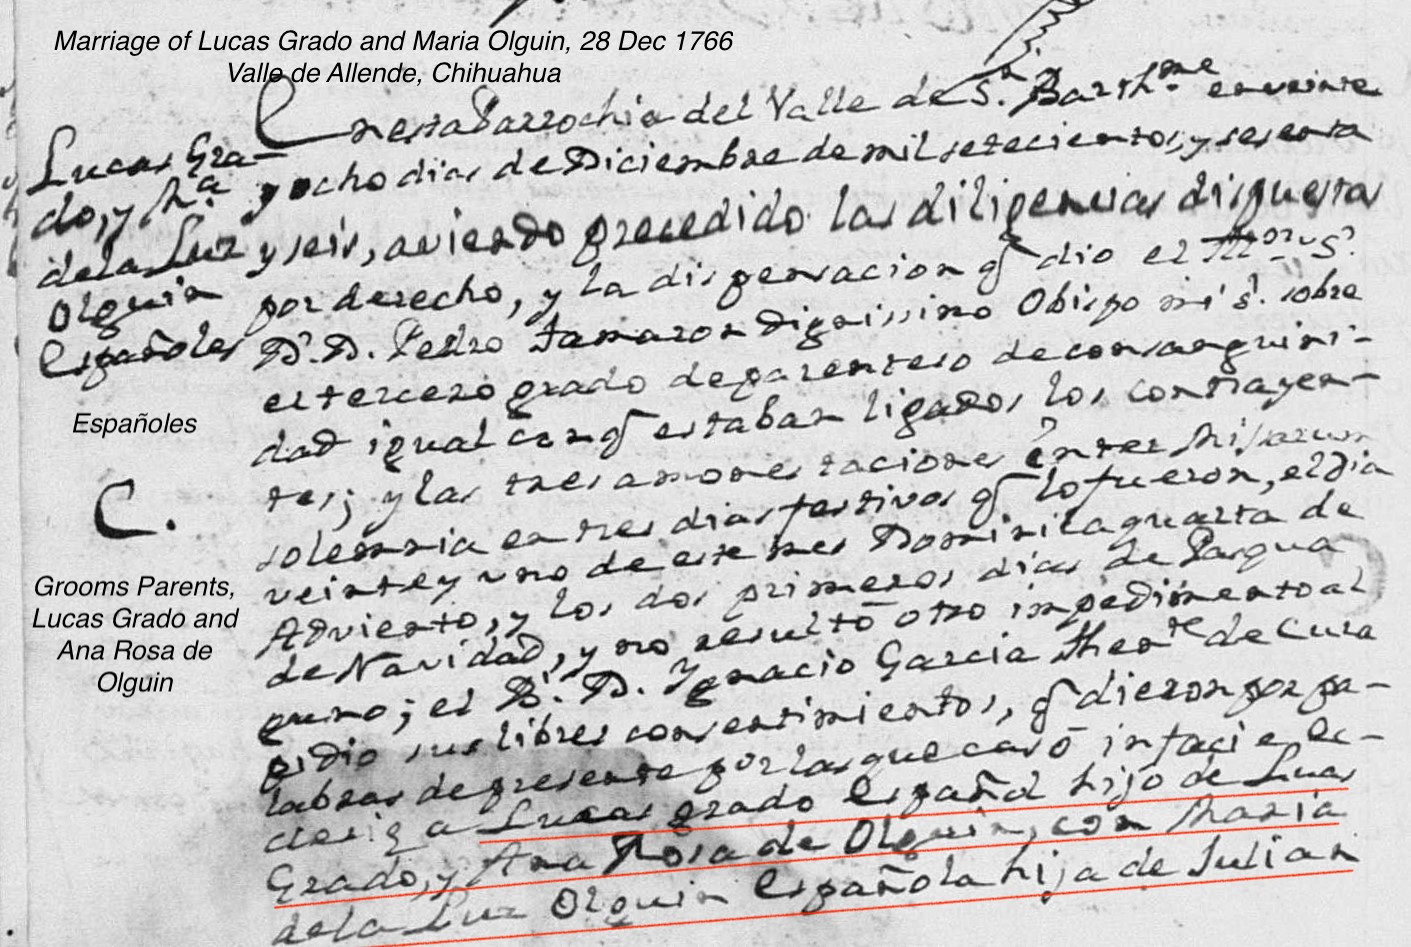 Marriage of Lucas Grado and Maria Olguin, 28 Dec 1766
Valle de Allende, Chihuahua
Lucas Gra-
do, y Ma
de la Luz
Olguin
Españoles
Españoles
C.
Grooms Parents,
Lucas Grado and
Ana Rosa de
Olguin
En esta Parrochia del Valle de Sn. Barthme en veinte
y ocho dias de Diciembre de mil setecientos, y sesenta
y seis, aviendo precedido las diligencias dispuestas
por derecho, y la dispensacion q dio el
Dr. D. Pedro Tamaron Dignissimo Obispo mi sr. sobre
el tercero grado de parentesco de consanguini-
dad igual con q estaban ligados los contrayen-
tes; y las tres amonestaciones inter Missarum
solemnia en tres dias festivos q lo fueron, el dia
veinte y uno de este mes Dominica quarta de
Adviento, y los dos primeros dias de Pasqua
de Navidad, y no resultó otro impedimento al
guno; el Br. D. Ygnacio Garcia Thente de Cura
pidio sus libres consentimientos, q dieron por pa-
labras de presente por las que casó in facie ec-
clesię a Lucas grado Español hijo de Lucas
Grado, y Ana Rosa de Olguin, con Maria
de la Luz Olguin Española hija de Julian